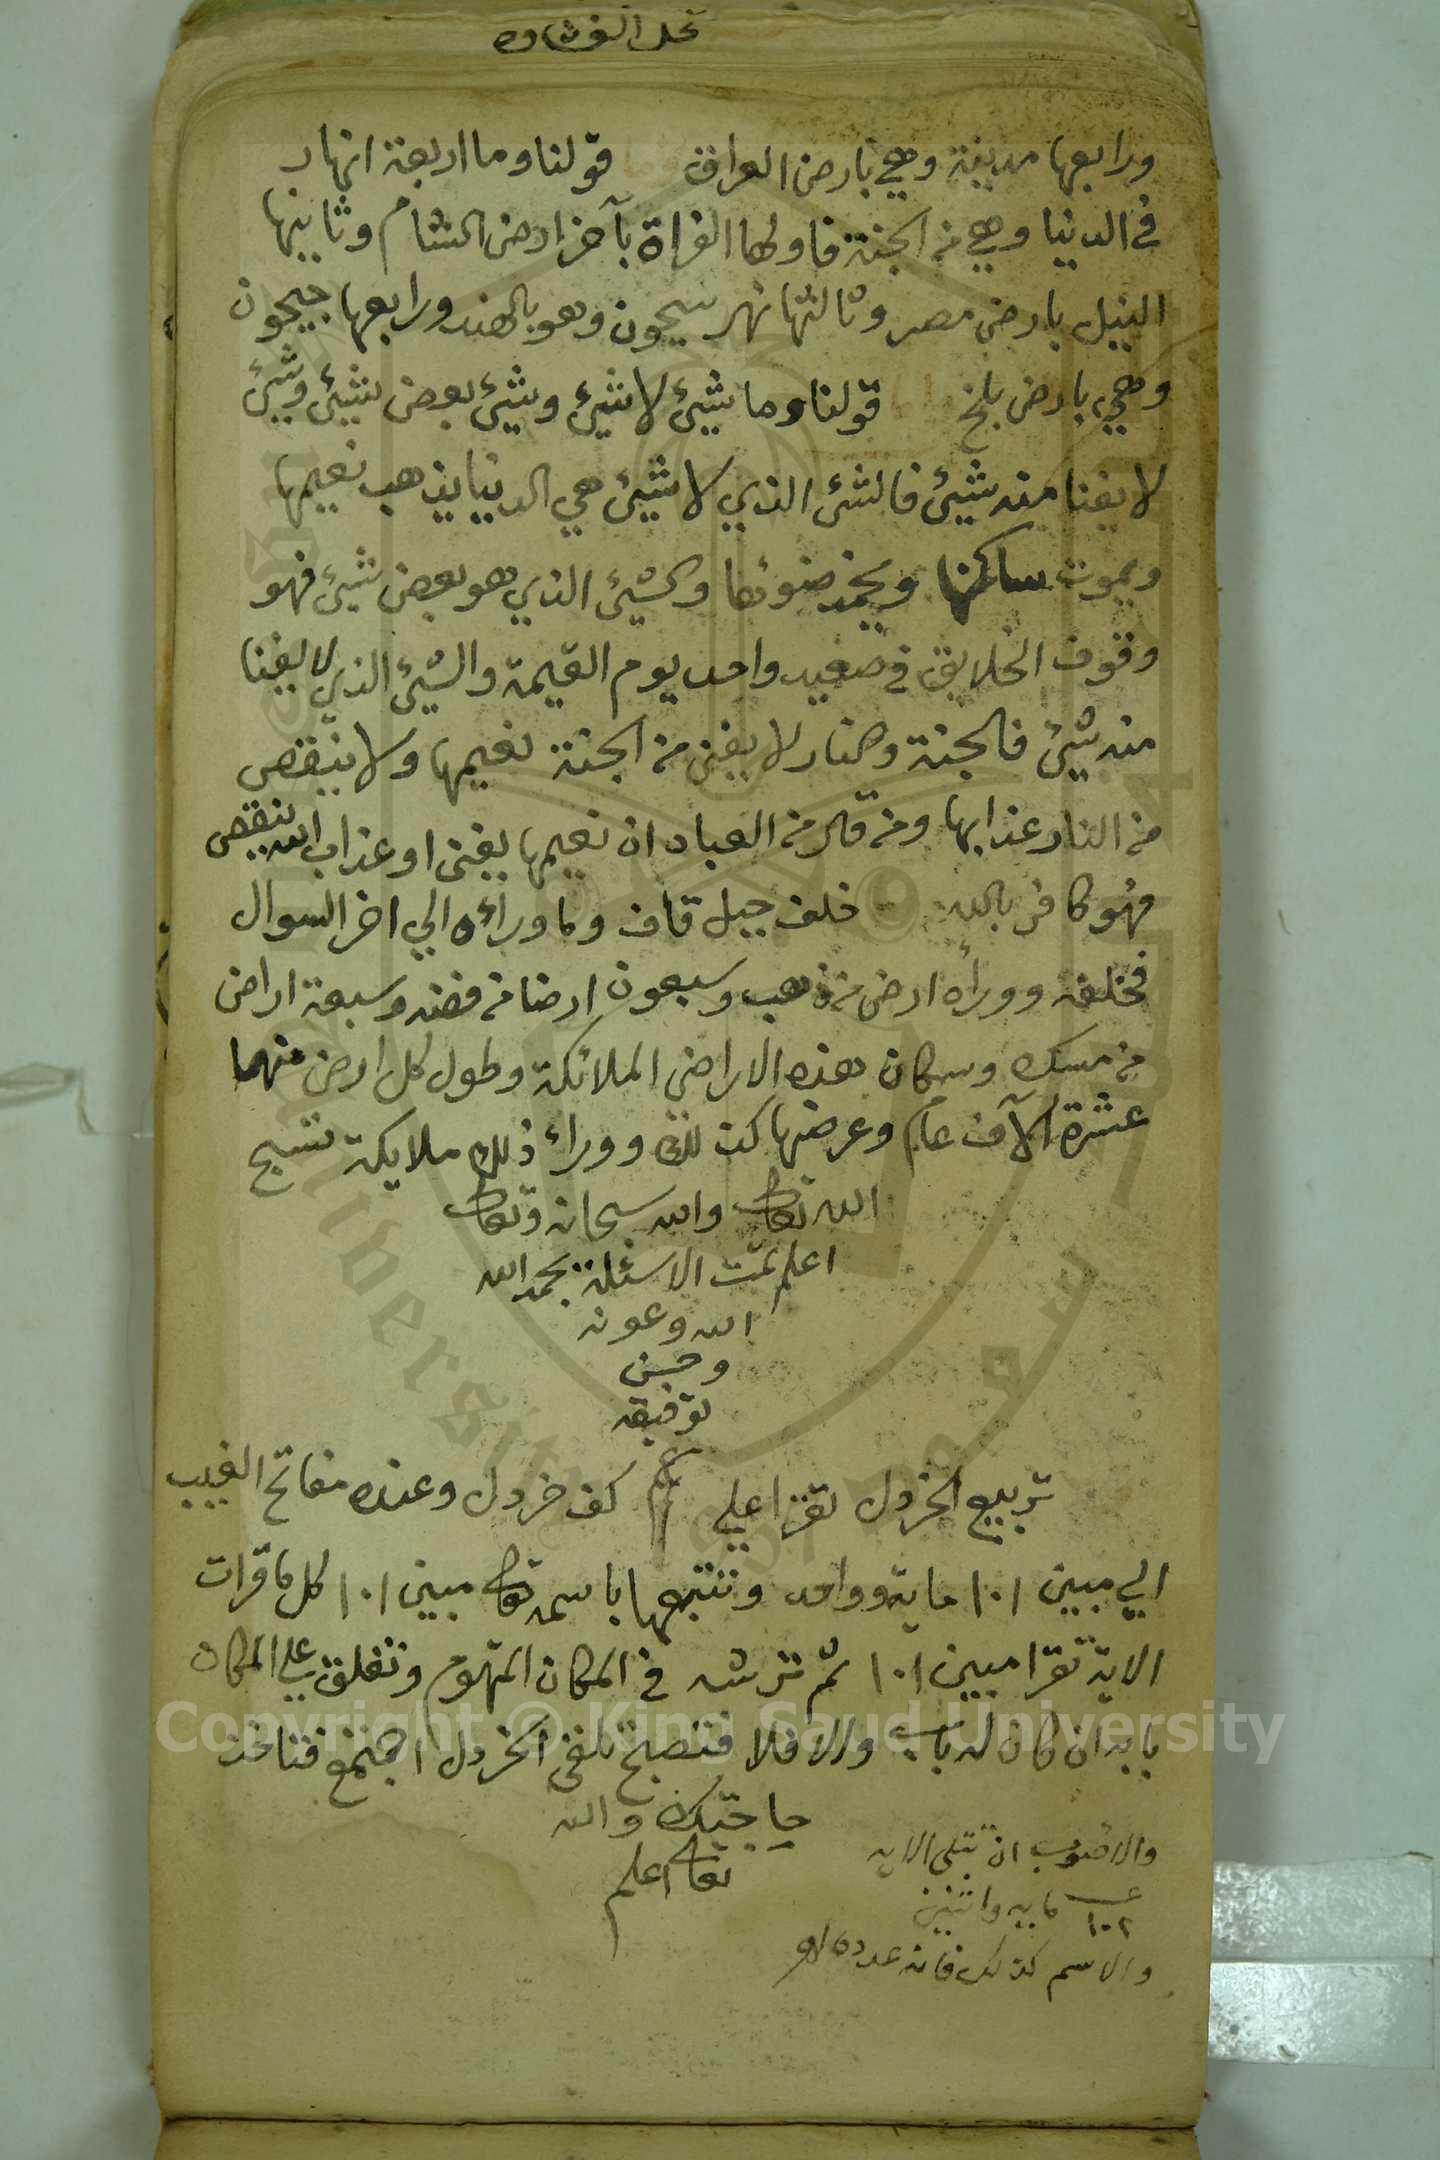 ورابعها مدينة وهي بارض العراق قولنا وما اربعة انهار
في الدنيا وهي من الجنة فاولها الفراة بآخر ارض الشام وثانيها
النيل بارض مصر وثالثها نهر سيحون وهو بالهند ورابعها جيحون
وهي بارض بلخ قولنا وما شيئ لا شيئ وشيئ بعض شيئ وشيئ
لا يفنا منه شيئ فالشئ الذي لا شيئ هي الدنيا يذهب نعيمها
ويموت ساكنها ويخمد ضوئها والشيئ الذي هو بعض شيئ فهو
وقوف الخلايق في صعيد واحد يوم القيمة والشيئ الذي لا يفنا
منه شيئ فالجنة والنار لا يفنى من الجنة نعيمها ولا ينقص
من النار عذابها ومن قال من العباد ان نعيمها يفنى او عذاب الله ينقص
فهو كافر بالله خلف جبل قاف وما وراءه الي اخر السوال
فخلفه ووراه ارض من ذهب وسبعون ارضا من فضه وسبعة اراض
من مسك وسكان هذه الاراضي الملائكة وطول كل ارض منهما
عشرة آلاف عام وعرضها كذلك ووراء ذلك ملايكة تسبح
الله تعالى والله سبحانه وتعالى
اعلم تمت الاسئلة بحمد الله
الله وعونه
وحسن
توفيقه
تربيع الخردل تقرا علي كف خردل وعنده مفاتح الغيب
الي مبين ١٠١ ماية وواحد وتتبعها باسمه تعالى مبين ١٠١ كل ما قرات
الاية تقرا مبين ١٠١ ثم ترشه في المكان المتهوم وتغلق علي المكان
بابه ان كان له باب والا فلا فتصبح تلقى الخردل اجتمع فتاخذ
حاجتك والله
تعالى اعلم
والاصوب ان تتلى الايه
١٠٢ مايه واثنين
والاسم كذلك فانه عدده
Copyright © King Saud University